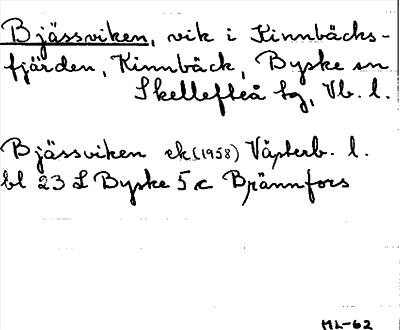 Bjässviken, vik i Kinnbäcks-
fjärden, Kinnbäck, Byske sn
Skellefteå tg, Vb. l.
Bjässviken ek (1958) Västerb. l.
bl 23 L Byske 5 c Brännfors
ML-62